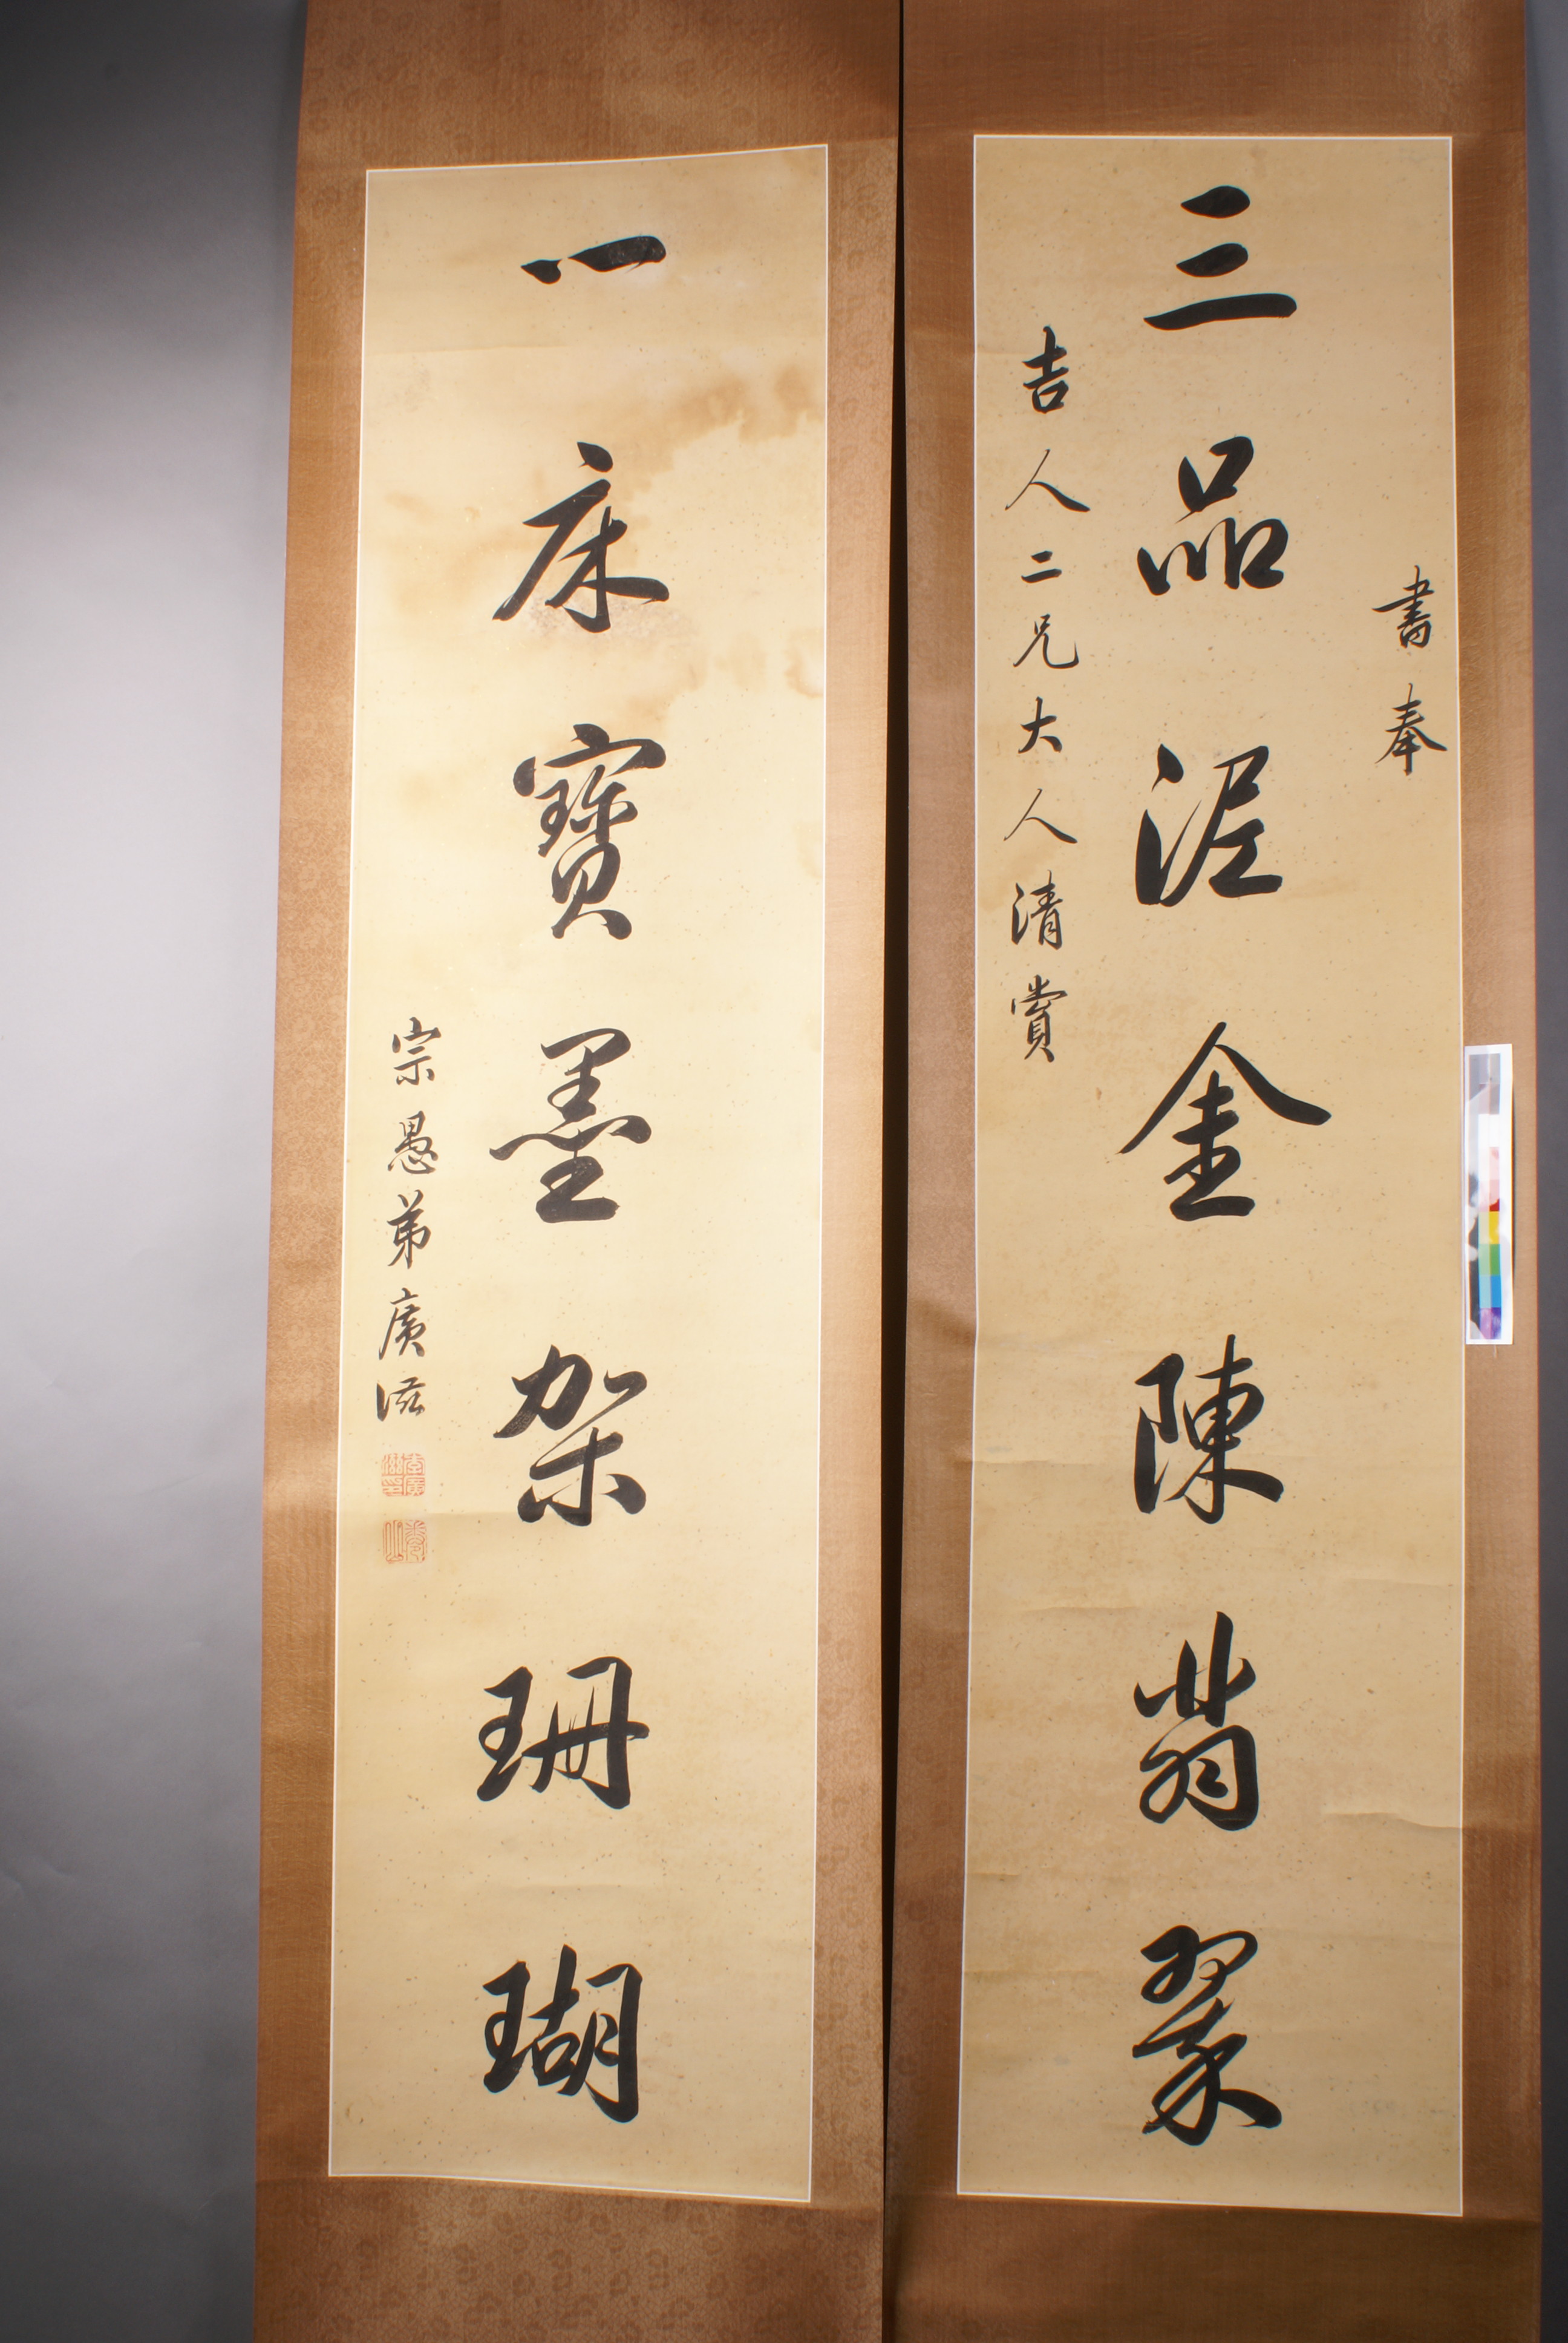 書奉
三品泥金陳翡翠
吉人二兄大人清賞
一床寶墨架珊瑚
宗愚弟廣滋